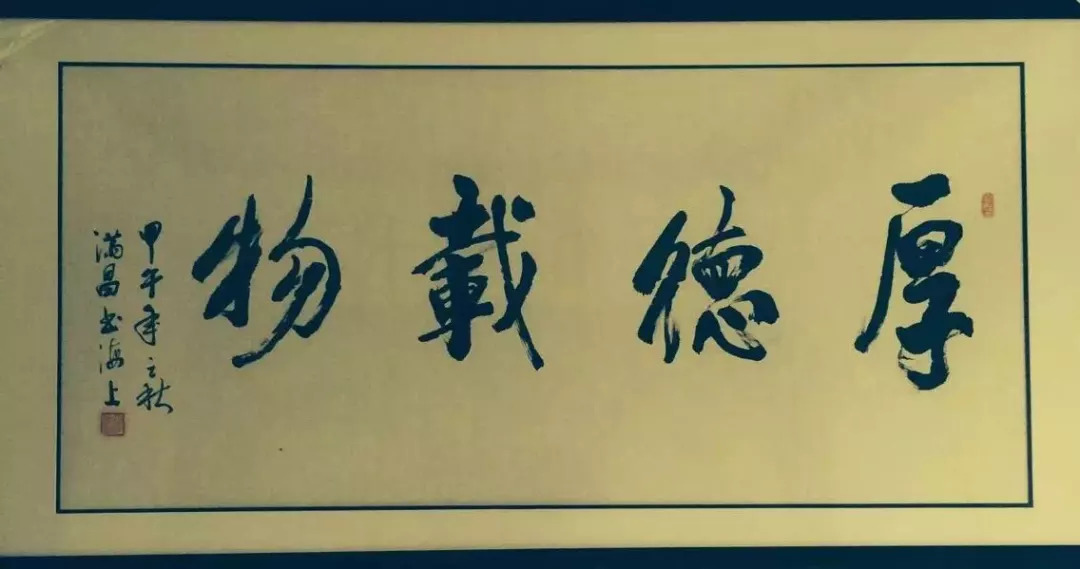 厚德載物
甲午年之秋
满昌书海上